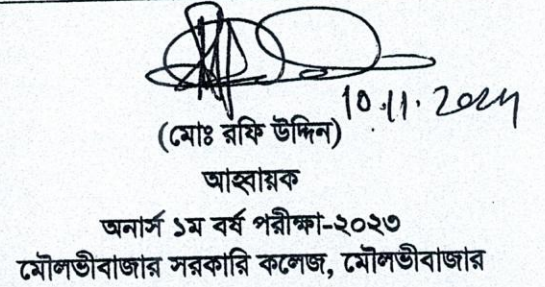 10.11.2024
(মোঃ রফি উদ্দিন)
আহ্বায়ক
অনার্স ১ম বর্ষ পরীক্ষা-২০২৩
মৌলভীবাজার সরকারি কলেজ, মৌলভীবাজার